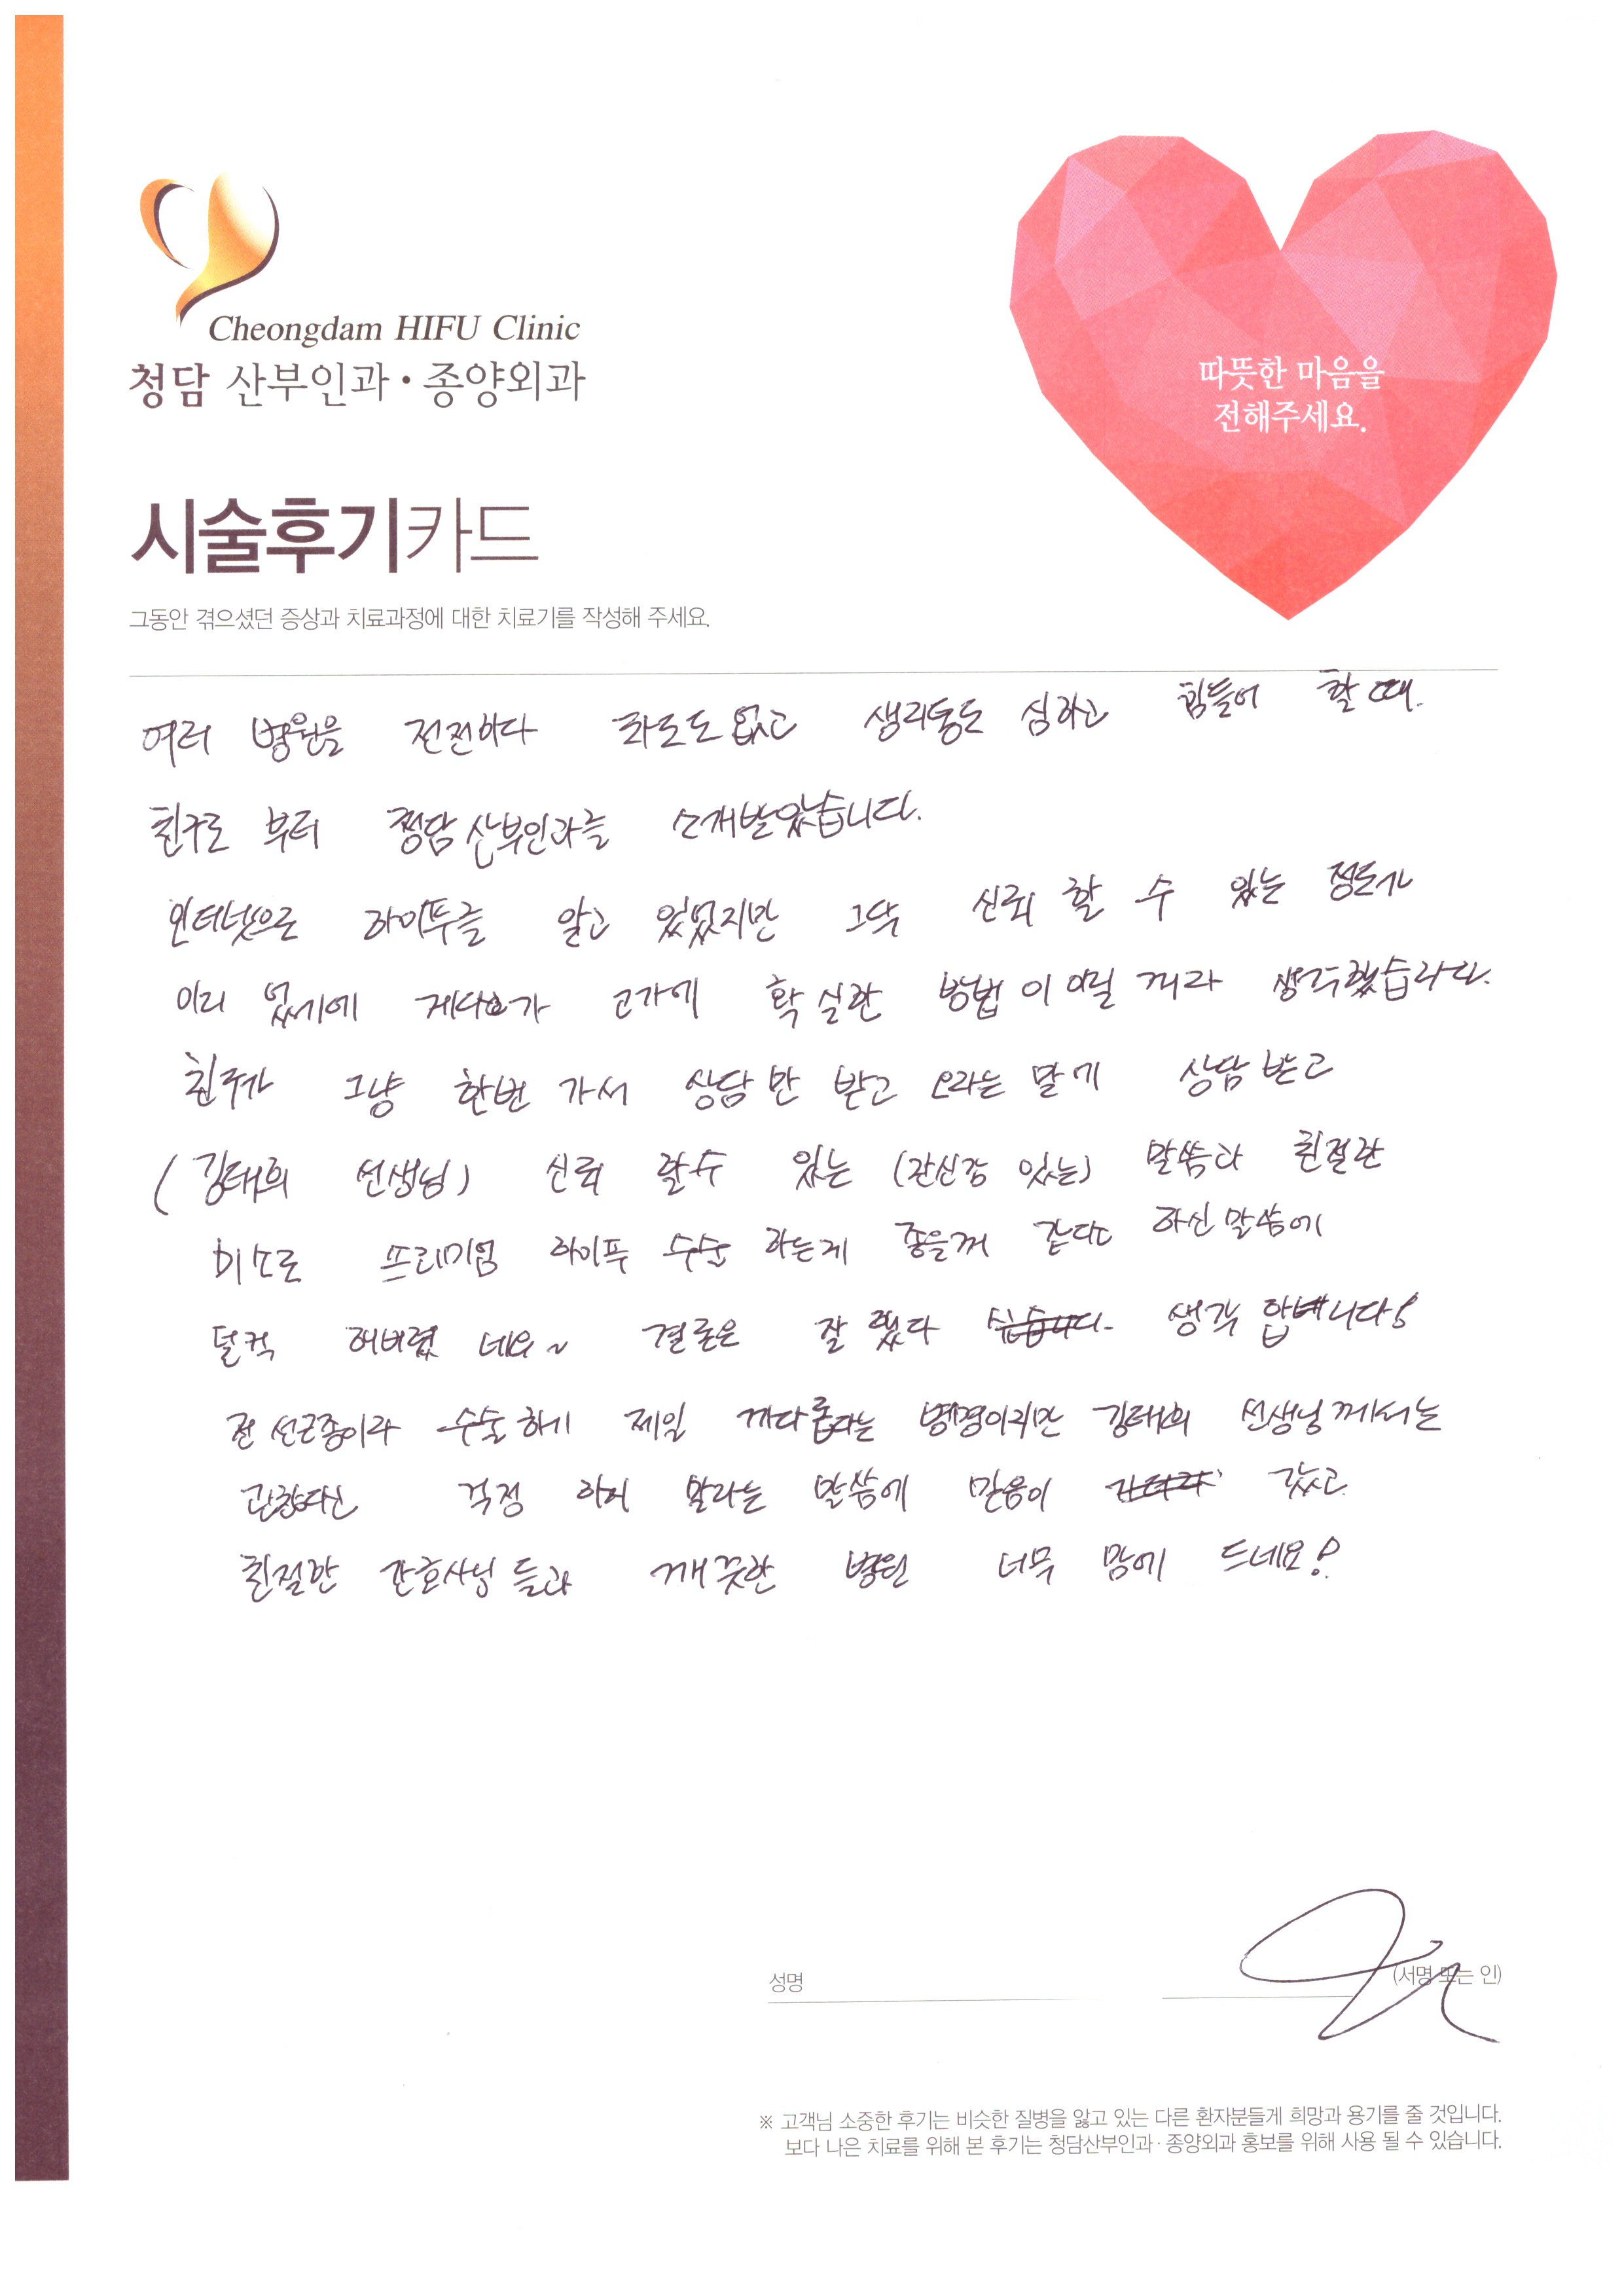 Cheongdam HIFU Clinic
청담 산부인과·종양외과
따뜻한 마음을
전해주세요.
시술후기카드
그동안 겪으셨던 증상과 치료과정에 대한 치료기를 작성해 주세요.
여러 병원을 전전하다 차도도 없고 생리통도 심하고 힘들어 할 때.
친구로 부터 청담산부인과를 소개받았습니다.
인터넷으로 하이푸를 알고 있었지만 그닥 신뢰 할 수 있는 정도가
이리 없기에 게다가 고가에 확실한 방법이 아닐 꺼라 생각했습니다.
친구가 그냥 한번 가서 상담만 받고 오라는 말에 상담 받고
(김태희 선생님) 신뢰 할수 있는 (자신감 있는) 말씀과 친절한
미소로 프리미엄 하이푸 수술 하는게 좋을꺼 같다고 하신 말씀에
덜컥 해버렸 네요~ 결론은 잘 했다 생각 합니다!
전 선근종이라 수술하기 제일 까다롭다는 병명이지만 김태희 선생님께서는
괜찮다신 걱정 하지 말라는 말씀에 믿음이 갔고
친절한 간호사님들과 깨끗한 병원 너무 맘에 드네요!
성명
(서명 또는 인)
※ 고객님 소중한 후기는 비슷한 질병을 앓고 있는 다른 환자분들게 희망과 용기를 줄 것입니다.
보다 나은 치료를 위해 본 후기는 청담산부인과·종양외과 홍보를 위해 사용 될 수 있습니다.